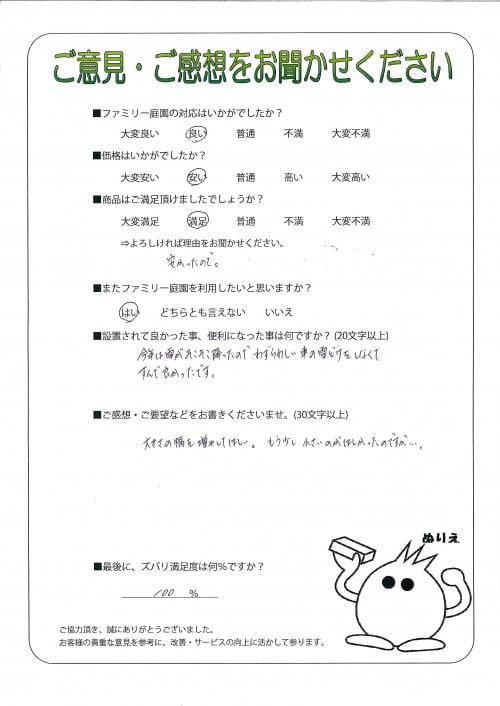 ご意見・ご感想をお聞かせください
■ファミリー庭園の対応はいかがでしたか？
大変良い 良い 普通 不満 大変不満
■価格はいかがでしたか？
大変安い 安い 普通 高い 大変高い
■商品はご満足頂けましたでしょうか？
大変満足 満足 普通 不満 大変不満
⇒よろしければ理由をお聞かせください。
安かったので。
■またファミリー庭園を利用したいと思いますか？
はい どちらとも言えない いいえ
■設置されて良かった事、便利になった事は何ですか？(20文字以上)
今年は雪がそこそこ降ったのでわずらわしい車の雪どけをしなくて
すんで良かったです。
■ご感想・ご要望などをお書きくださいませ。(30文字以上)
大きさの幅を増やしてほしい。もう少し小さいのがほしかったのですが…。
ぬりえ
■最後に、ズバリ満足度は何％ですか？
100 %
ご協力頂き、誠にありがとうございました。
お客様の貴重な意見を参考に、改善・サービスの向上に活かして参ります。